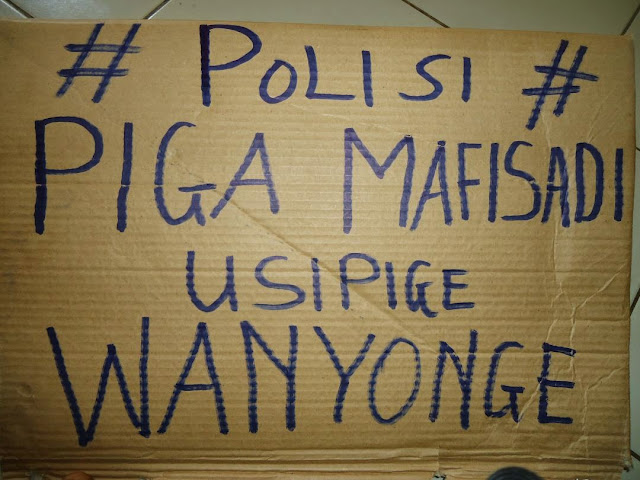 # POLISI #
PIGA MAFISADI
USIPIGE
WANYONGE